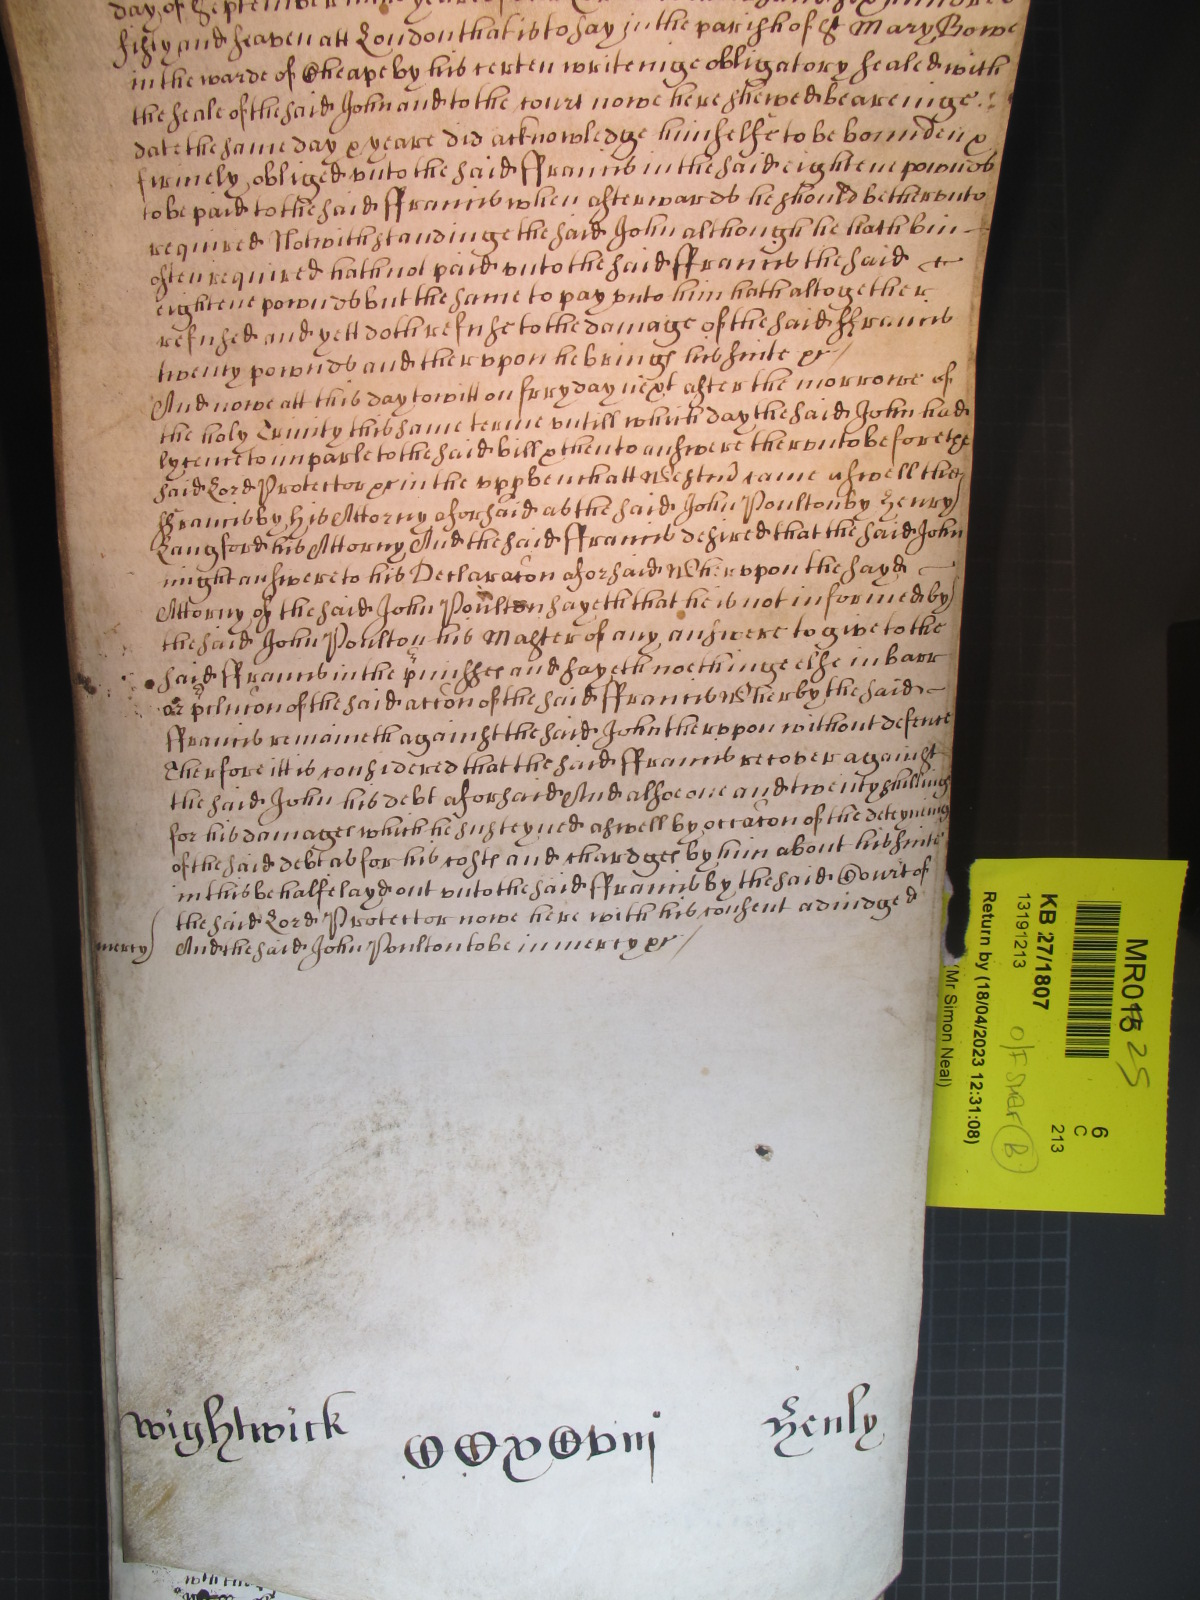 day of September
fifty and seaven att London that is to say in the parish of St Mary Bowe
in the warde of Cheape by his certen writeinge obligatory sealed with
the seale of the said John and to the court nowe here shewed beareinge
date the same day & yeare did acknowledge himselfe to be bounden &
firmely obliged unto the said ffrancis in the said eightene pownds
to be paid to the said ffrancis when afterwards he should be therunto
required Notwithstandinge the said John although he hath bin
often required hath not paid unto the said ffrancis the said
eightene pownds but the same to pay unto him hath altogether
refused and yett doth refuse to the damage of the said ffrancis
twenty pownds and therupon he brings his suite &c
And nowe att this day to witt on fryday next after the morrowe of
the holy Trinity this same terme untill which day the said John had
lycence to imparle to the said bill & then to answere therunto before the
said Lord Protector &c in the uppbench att Westm̃ came aswell the
ffrancis by his Attorny aforsaid as the said John Poulton by Henry
Langford his Attorny And the said ffrancis desired that the said John
might answere to his Declarac̃on aforsaid Wherupon the sayd
Attorny of the said John Poulton sayeth that he is not informed by
the said John Poulton his Master of any answere to give to the
said ffrancis in the p̃misses and sayeth noethinge else in barr
or p̃clusion of the said acc̃on of the said ffrancis Wherby the said
ffrancis remaineth against the said John therupon without defence
Therfore itt is considered that the said ffrancis recover against
the said John his debt aforsaid And alsoe one and twenty shillings
for his damages which he susteyned aswell by occac̃on of the deteyneing
of the said debt as for his costs and chardges by him about his suite
in this behalfe layd out unto the said ffrancis by the said Court of
the said Lord Protector nowe here with his consent adiudged
mercy And the said John Poulton to be in mercy &c
Wightwick
Henly
MR013 25
KB 27/1807
13191213
O/F Smar (B)
Return by (18/04/2023 12:31:08)
(Mr Simon Neal)
6
C
213